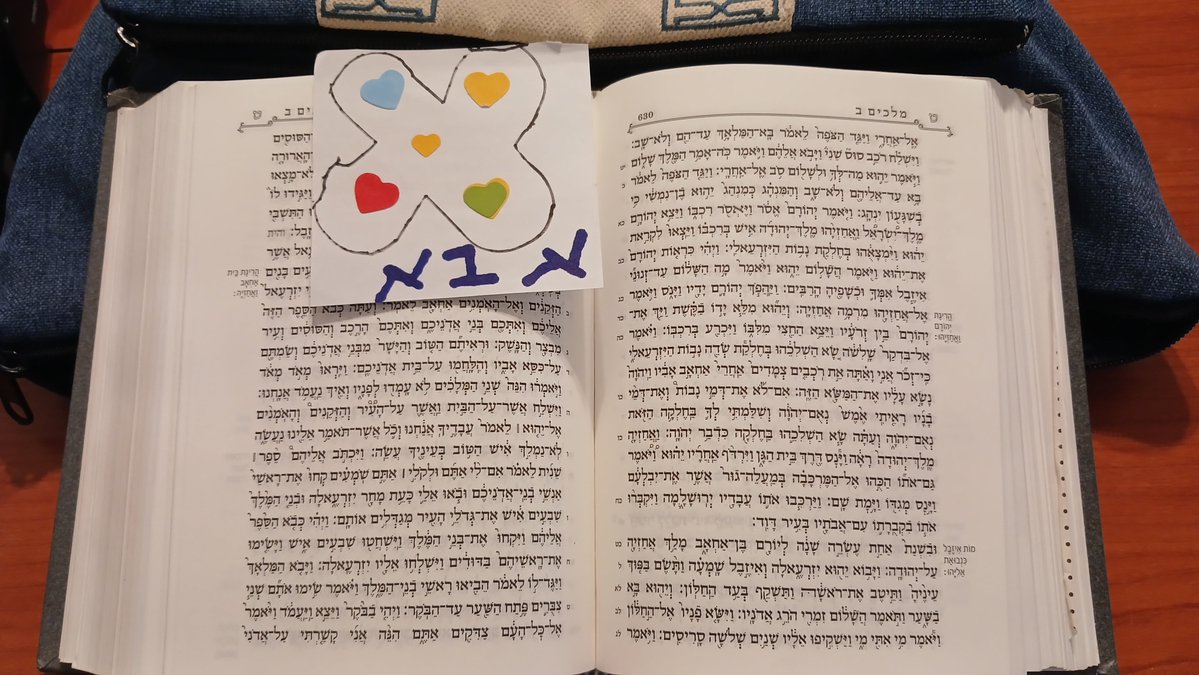 630 מלכים ב
אֶל־אַחֲרָי וַיַּגֵּד הַצֹּפֶה לֵאמֹר בָּא־הַמַּלְאָךְ עַד־הֵם וְלֹא־שָׁב׃
וַיִּשְׁלַח רֹכֵב סוּס שֵׁנִי וַיָּבֹא אֲלֵהֶם וַיֹּאמֶר כֹּה־אָמַר הַמֶּלֶךְ שָׁלוֹם יט
וַיֹּאמֶר יֵהוּא מַה־לְּךָ וּלְשָׁלוֹם סֹב אֶל־אַחֲרָי׃ וַיַּגֵּד הַצֹּפֶה לֵאמֹר כ
בָּא עַד־אֲלֵיהֶם וְלֹא־שָׁב וְהַמִּנְהָג כְּמִנְהַג יֵהוּא בֶן־נִמְשִׁי כִּי
בְשִׁגָּעוֹן יִנְהָג׃ וַיֹּאמֶר יְהוֹרָם אֱסֹר וַיֶּאְסֹר רִכְבּוֹ וַיֵּצֵא יְהוֹרָם כא
מֶלֶךְ־יִשְׂרָאֵל וַאֲחַזְיָהוּ מֶלֶךְ־יְהוּדָה אִישׁ בְּרִכְבּוֹ וַיֵּצְאוּ לִקְרַאת
יֵהוּא וַיִּמְצָאֻהוּ בְּחֶלְקַת נָבוֹת הַיִּזְרְעֵאלִי׃ וַיְהִי כִּרְאוֹת יְהוֹרָם כב
אֶת־יֵהוּא וַיֹּאמֶר הֲשָׁלוֹם יֵהוּא וַיֹּאמֶר מָה הַשָּׁלוֹם עַד־זְנוּנֵי
אִיזֶבֶל אִמְּךָ וּכְשָׁפֶיהָ הָרַבִּים׃ וַיַּהֲפֹךְ יְהוֹרָם יָדָיו וַיָּנֹס וַיֹּאמֶר כג
אֶל־אֲחַזְיָהוּ מִרְמָה אֲחַזְיָה׃ וְיֵהוּא מִלֵּא יָדוֹ בַקֶּשֶׁת וַיַּךְ אֶת־ כד
יְהוֹרָם בֵּין זְרֹעָיו וַיֵּצֵא הַחֵצִי מִלִּבּוֹ וַיִּכְרַע בְּרִכְבּוֹ׃ וַיֹּאמֶר כה
אֶל־בִּדְקַר שָׁלִשֹׁה שָׂא הַשְׁלִכֵהוּ בְּחֶלְקַת שְׂדֵה נָבוֹת הַיִּזְרְעֵאלִי
כִּי־זְכֹר אֲנִי וָאַתָּה אֵת רֹכְבִים צְמָדִים אַחֲרֵי אַחְאָב אָבִיו וַיהוָה
נָשָׂא עָלָיו אֶת־הַמַּשָּׂא הַזֶּה׃ אִם־לֹא אֶת־דְּמֵי נָבוֹת וְאֶת־דְּמֵי כו
בָנָיו רָאִיתִי אֶמֶשׁ נְאֻם־יְהוָה וְשִׁלַּמְתִּי לְךָ בַּחֶלְקָה הַזֹּאת
נְאֻם־יְהוָה וְעַתָּה שָׂא הַשְׁלִכֵהוּ בַּחֶלְקָה כִּדְבַר יְהוָה׃ וַאֲחַזְיָה כז
מֶלֶךְ־יְהוּדָה רָאָה וַיָּנָס דֶּרֶךְ בֵּית הַגָּן וַיִּרְדֹּף אַחֲרָיו יֵהוּא וַיֹּאמֶר
גַּם־אֹתוֹ הַכֻּהוּ אֶל־הַמֶּרְכָּבָה בְּמַעֲלֵה־גוּר אֲשֶׁר אֶת־יִבְלְעָם
וַיָּנָס מְגִדּוֹ וַיָּמָת שָׁם׃ וַיַּרְכִּבוּ אֹתוֹ עֲבָדָיו יְרוּשָׁלְָמָה וַיִּקְבְּרוּ כח
אֹתוֹ בִקְבֻרָתוֹ עִם־אֲבֹתָיו בְּעִיר דָּוִד׃
וּבִשְׁנַת אַחַת עֶשְׂרֵה שָׁנָה לְיוֹרָם בֶּן־אַחְאָב מָלַךְ אֲחַזְיָה כט
עַל־יְהוּדָה׃ וַיָּבוֹא יֵהוּא יִזְרְעֶאלָה וְאִיזֶבֶל שָׁמְעָה וַתָּשֶׂם בַּפּוּךְ ל
עֵינֶיהָ וַתֵּיטֶב אֶת־רֹאשָׁהּ וַתַּשְׁקֵף בְּעַד הַחַלּוֹן׃ וְיֵהוּא בָּא לא
בַשָּׁעַר וַתֹּאמֶר הֲשָׁלוֹם זִמְרִי הֹרֵג אֲדֹנָיו׃ וַיִּשָּׂא פָנָיו אֶל־הַחַלּוֹן לב
וַיֹּאמֶר מִי אִתִּי מִי וַיַּשְׁקִיפוּ אֵלָיו שְׁנַיִם שְׁלֹשָׁה סָרִיסִים׃ וַיֹּאמֶר לג
הֲרִיגַת
יְהוֹרָם
וַאֲחַזְיָהוּ׃
מוֹת אִיזֶבֶל
כִּנְבוּאַת
אֵלִיָּהוּ׃
אבא
ים ב
הַסּוּסִים
הָאֲרוּרָה
לֹא־מָצְאוּ
וַיַּגִּידוּ לוֹ
הַתִּשְׁבִּי
אֲשֶׁר
בָּנִים
יִזְרְעֶאל
הֲרִיגַת בֵּית
אַחְאָב
וַאֲחַזְיָה׃
הַזְּקֵנִים וְאֶל־הָאֹמְנִים אַחְאָב לֵאמֹר׃ וְעַתָּה כְּבֹא הַסֵּפֶר הַזֶּה ב
אֲלֵיכֶם וְאִתְּכֶם בְּנֵי אֲדֹנֵיכֶם וְאִתְּכֶם הָרֶכֶב וְהַסּוּסִים וְעִיר
מִבְצָר וְהַנָּשֶׁק׃ וּרְאִיתֶם הַטּוֹב וְהַיָּשָׁר מִבְּנֵי אֲדֹנֵיכֶם וְשַׂמְתֶּם ג
עַל־כִּסֵּא אָבִיו וְהִלָּחֲמוּ עַל־בֵּית אֲדֹנֵיכֶם׃ וַיִּרְאוּ מְאֹד מְאֹד ד
וַיֹּאמְרוּ הִנֵּה שְׁנֵי הַמְּלָכִים לֹא עָמְדוּ לְפָנָיו וְאֵיךְ נַעֲמֹד אֲנָחְנוּ׃
וַיִּשְׁלַח אֲשֶׁר־עַל־הַבַּיִת וַאֲשֶׁר עַל־הָעִיר וְהַזְּקֵנִים וְהָאֹמְנִים ה
אֶל־יֵהוּא ׀ לֵאמֹר עֲבָדֶיךָ אֲנַחְנוּ וְכֹל אֲשֶׁר־תֹּאמַר אֵלֵינוּ נַעֲשֶׂה
לֹא־נַמְלִיךְ אִישׁ הַטּוֹב בְּעֵינֶיךָ עֲשֵׂה׃ וַיִּכְתֹּב אֲלֵיהֶם סֵפֶר ׀ ו
שֵׁנִית לֵאמֹר אִם־לִי אַתֶּם וּלְקֹלִי ׀ אַתֶּם שֹׁמְעִים קְחוּ אֶת־רָאשֵׁי
אַנְשֵׁי בְנֵי־אֲדֹנֵיכֶם וּבֹאוּ אֵלַי כָּעֵת מָחָר יִזְרְעֶאלָה וּבְנֵי הַמֶּלֶךְ
שִׁבְעִים אִישׁ אֶת־גְּדֹלֵי הָעִיר מְגַדְּלִים אוֹתָם׃ וַיְהִי כְּבֹא הַסֵּפֶר ז
אֲלֵיהֶם וַיִּקְחוּ אֶת־בְּנֵי הַמֶּלֶךְ וַיִּשְׁחֲטוּ שִׁבְעִים אִישׁ וַיָּשִׂימוּ
אֶת־רָאשֵׁיהֶם בַּדּוּדִים וַיִּשְׁלְחוּ אֵלָיו יִזְרְעֶאלָה׃ וַיָּבֹא הַמַּלְאָךְ ח
וַיַּגֶּד־לוֹ לֵאמֹר הֵבִיאוּ רָאשֵׁי בְנֵי־הַמֶּלֶךְ וַיֹּאמֶר שִׂימוּ אֹתָם שְׁנֵי
צִבֻּרִים פֶּתַח הַשַּׁעַר עַד־הַבֹּקֶר׃ וַיְהִי בַבֹּקֶר וַיֵּצֵא וַיַּעֲמֹד וַיֹּאמֶר ט
אֶל־כָּל־הָעָם צַדִּקִים אַתֶּם הִנֵּה אֲנִי קָשַׁרְתִּי עַל־אֲדֹנִי